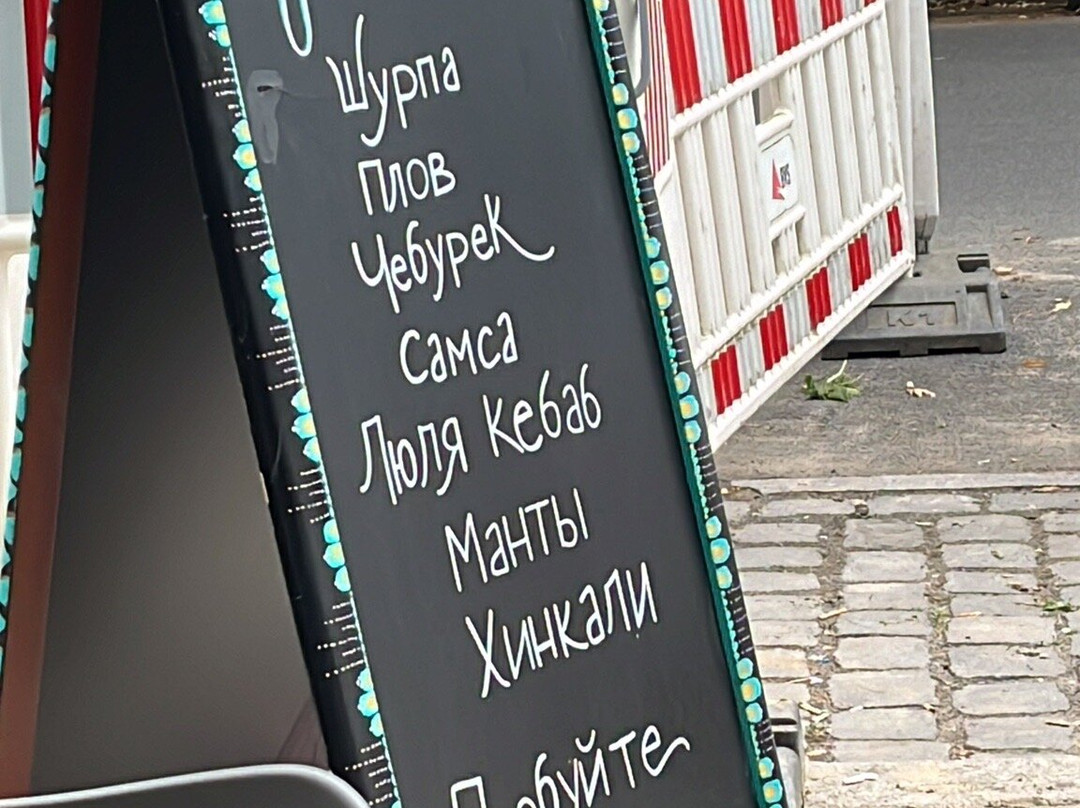 Шурпа
Плов
Чебурек
Самса
Люля кебаб
Манты
Хинкали
Попробуйте
K1